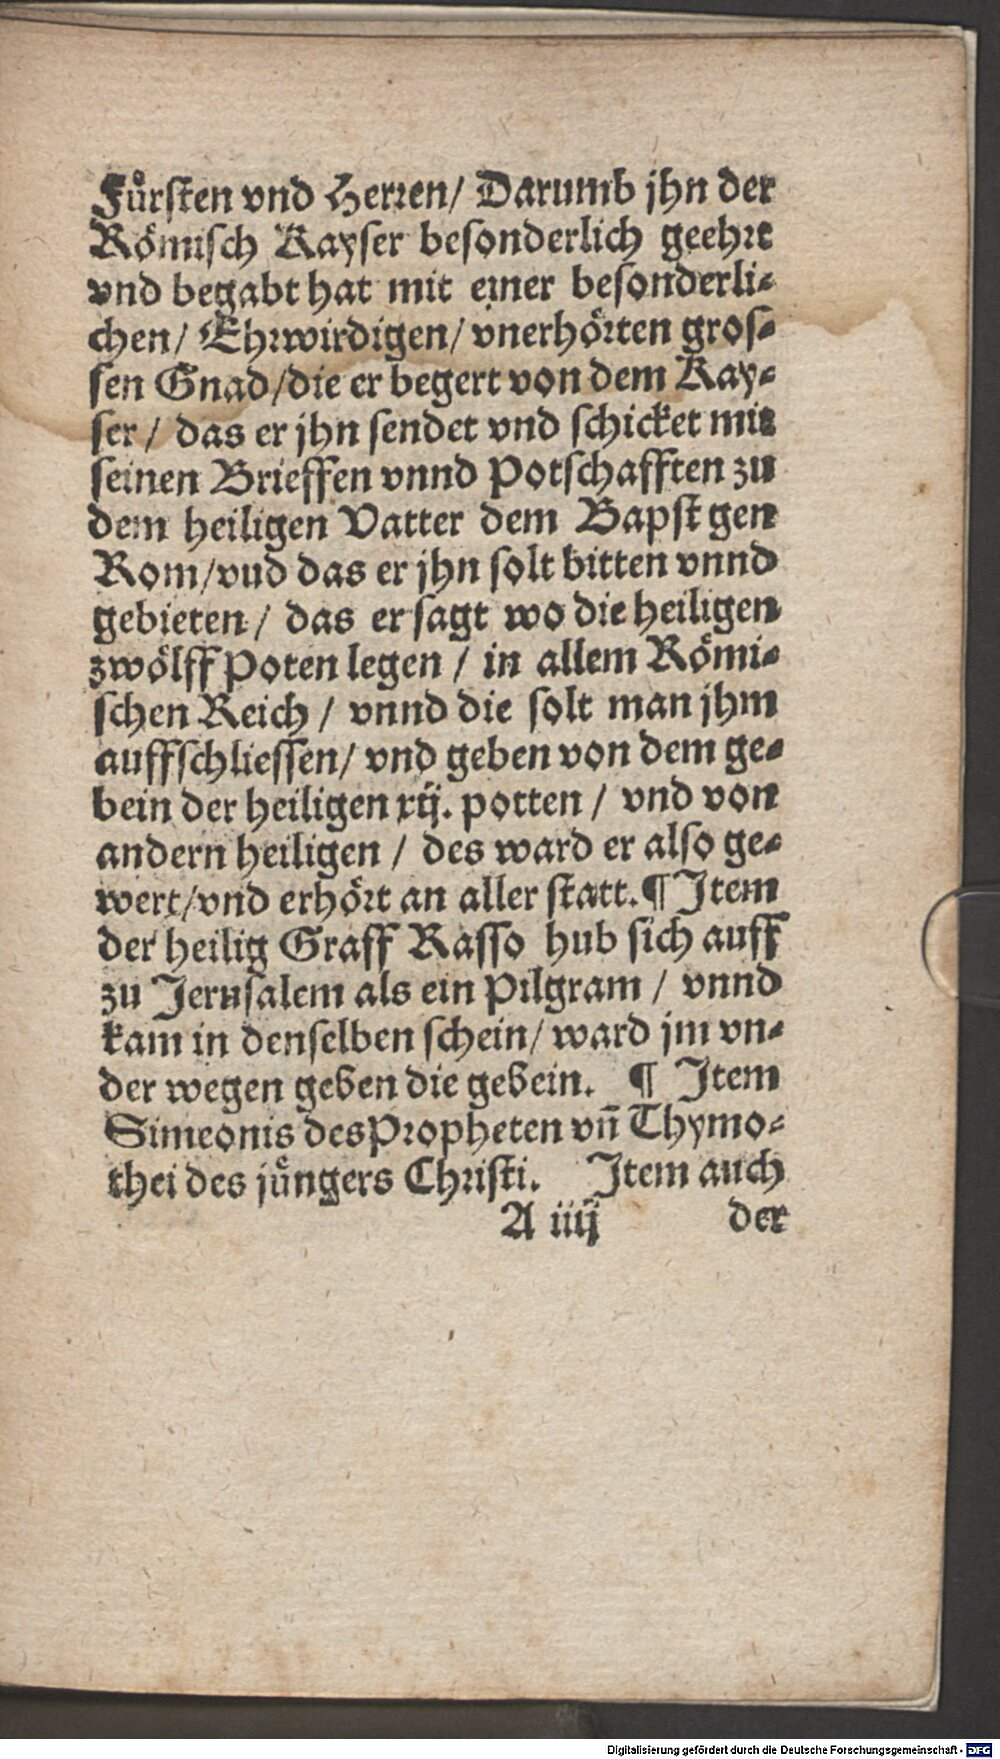 Fůrsten vnd Herren/ Darumb jhn der
Römisch Kayser besonderlich geehrt
vnd begabt hat mit einer besonderli-
chen/ Ehrwirdigen/ vnerhörten gros-
sen Gnad/die er begert von dem Kay-
ser/ das er jhn sendet vnd schicket mit
seinen Brieffen vnnd Potschafften zu
dem heiligen Vatter dem Bapst gen
Rom/vud das er jhn solt bitten vnnd
gebieten/ das er sagt wo die heiligen
zwölff Poten legen/ in allem Römi-
schen Reich/ vnnd die solt man jhm
auffschliessen/ vnd geben von dem ge-
bein der heiligen xij. potten/ vnd von
andern heiligen/ des ward er also ge-
wert/vnd erhört an aller statt.¶ Item
der heilig Graff Rasso hub sich auff
zu Jerusalem als ein Pilgram/ vnnd
kam in denselben schein/ ward jm vn-
der wegen geben die gebein. ¶ Item
Simeonis des Propheten vñ Thymo-
thei des jůngers Christi. Item auch
A iiij der
Digitalisierung gefördert durch die Deutsche Forschungsgemeinschaft - DFG